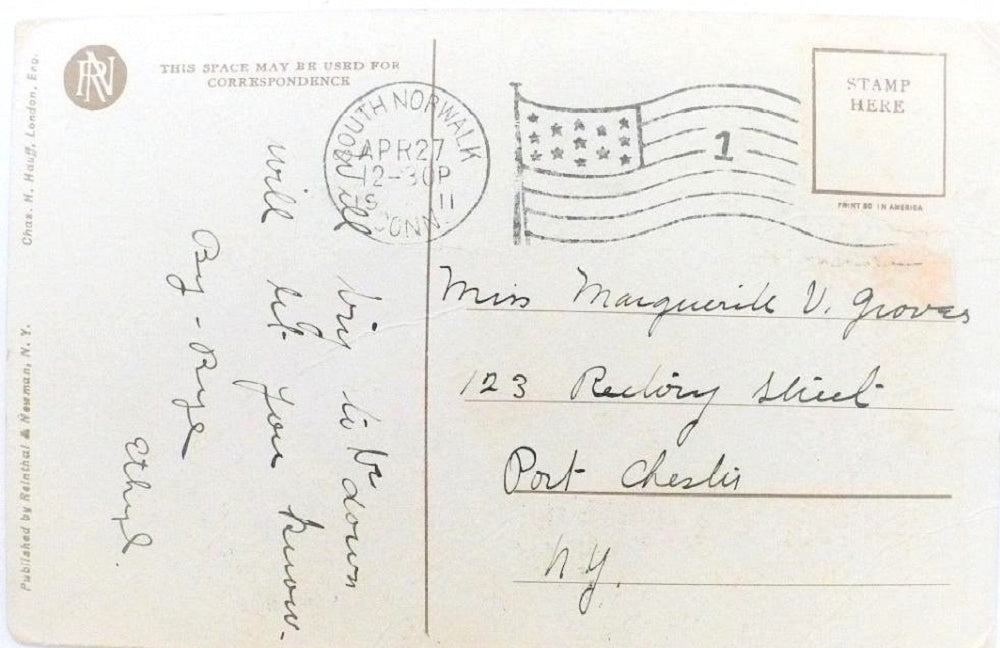 THIS SPACE MAY BE USED FOR
CORRESPONDENCE
Chas. H. Hauff, London, Eng.
Published by Reinthal & Newman, N. Y.
RN
SOUTH NORWALK
APR 27
12-30P
11
CONN.
1
STAMP
HERE
PRINTED IN AMERICA
Will try to be down
will let you know.
By - Bye
Ethyl.
Miss Marguerite V. Groves
123 Rectory Street
Port Chester
N.Y.